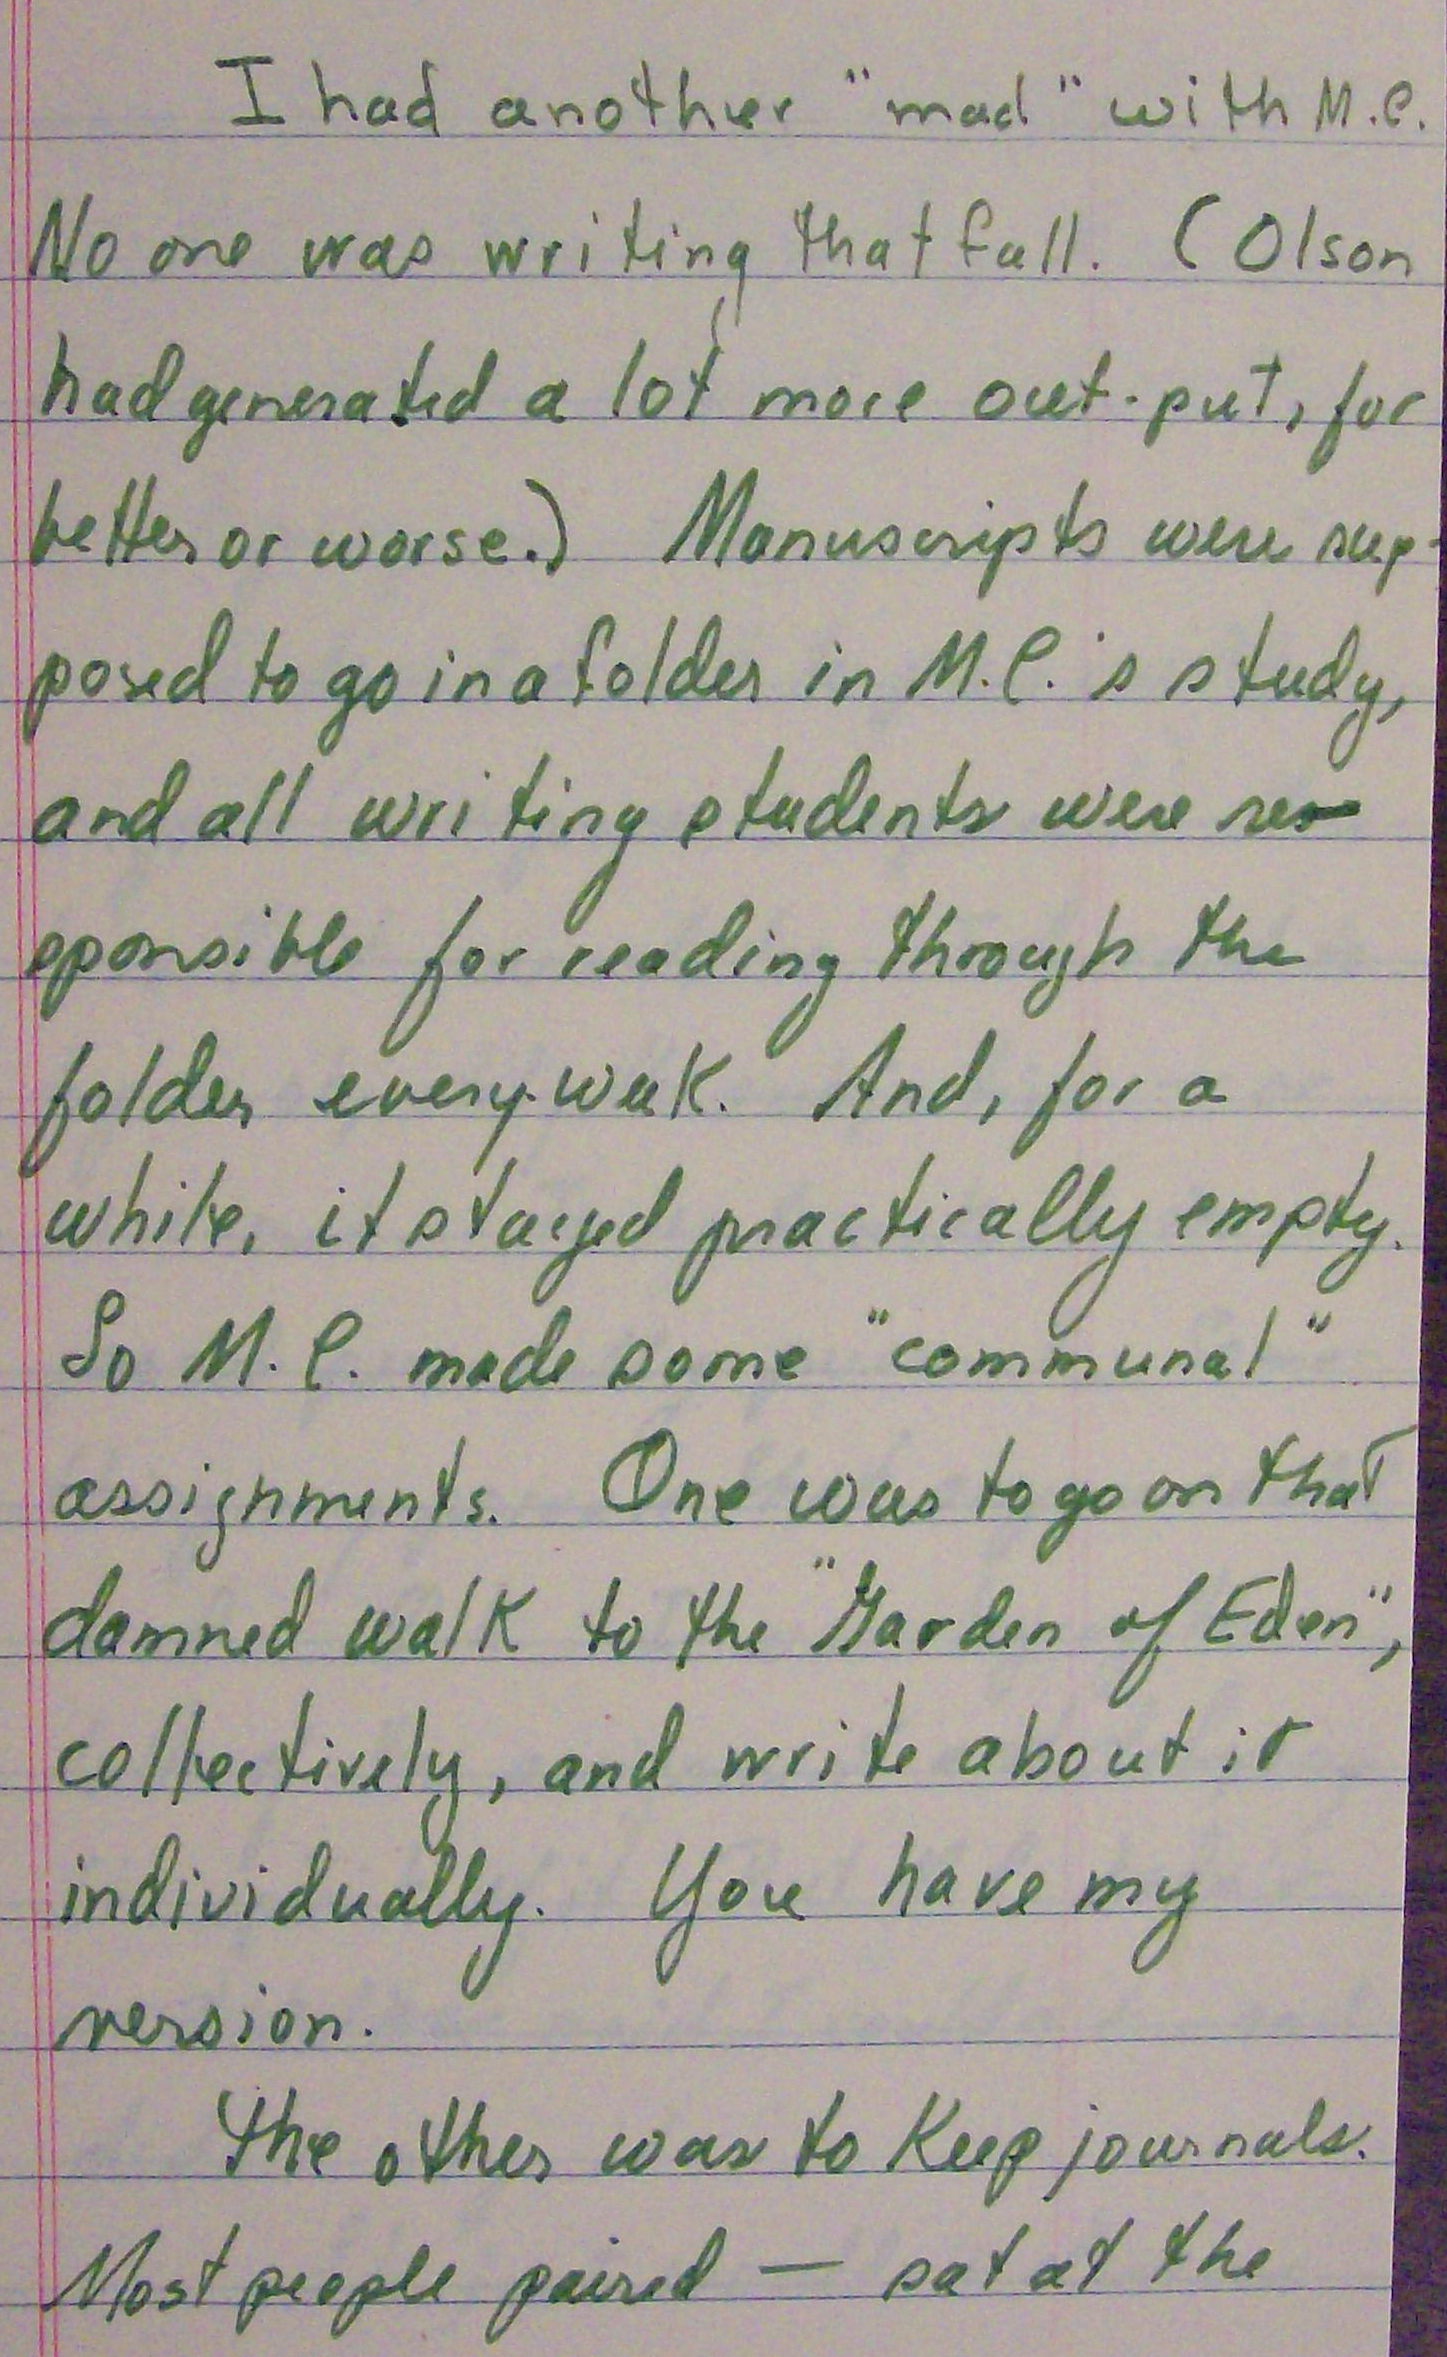 I had another "mad" with M.C.
No one was writing that fall. (Olson
had generated a lot more out-put, for
better or worse.) Manuscripts were sup-
posed to go in a folder in M.C.'s study,
and all writing students were res-
ponsible for reading through the
folder every week. And, for a
while, it stayed practically empty.
So M.C. made some "communal"
assignments. One was to go on that
damned walk to the "Garden of Eden",
collectively, and write about it
individually. You have my
version.
The other was to keep journals.
Most people paired — sat at the